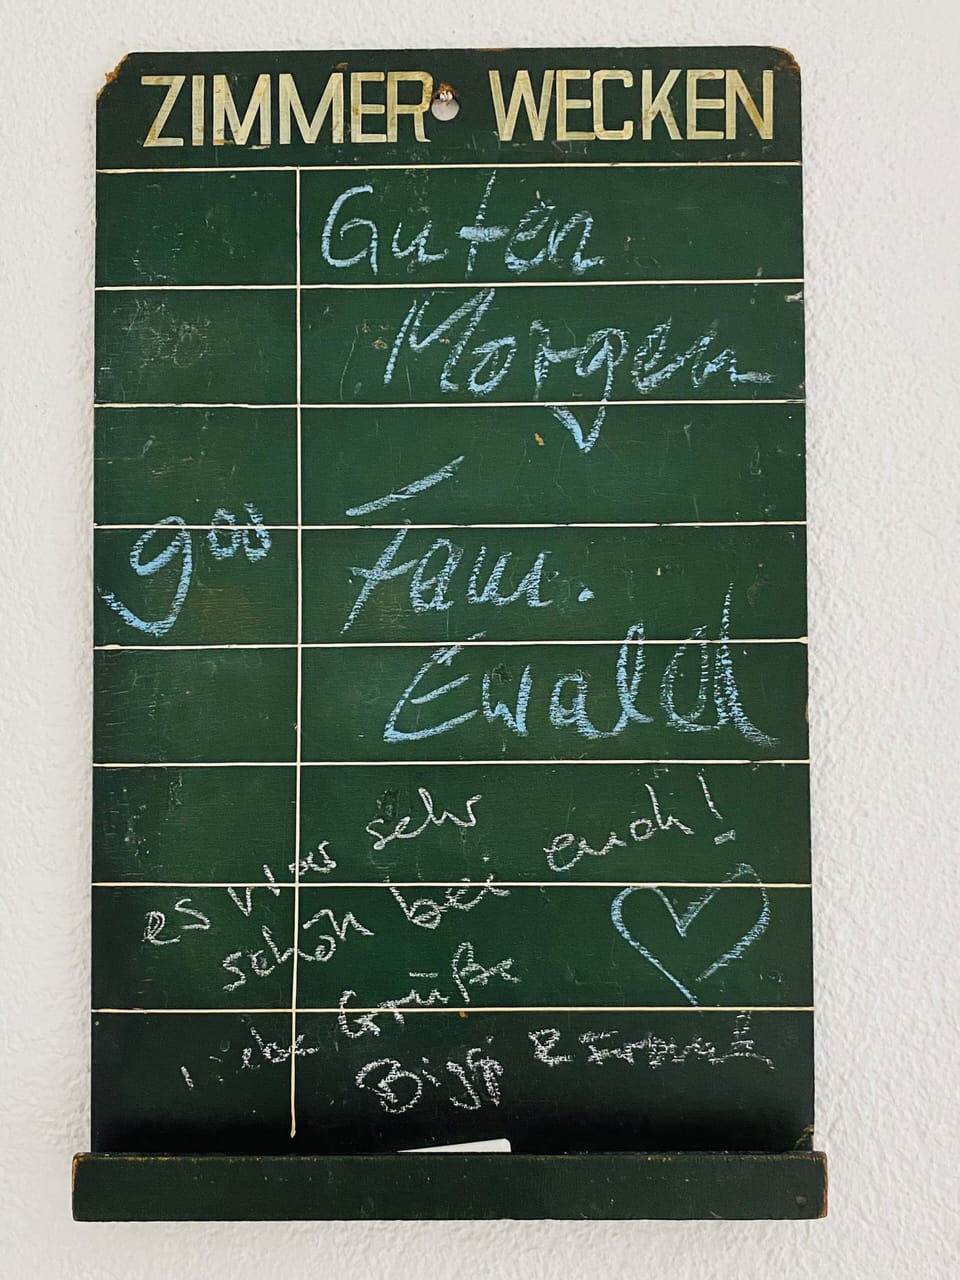 ZIMMER WECKEN
Guten
Morgen
9 00 Fam.
Ewald
es war sehr
schön bei euch!
Liebe Grüße
&